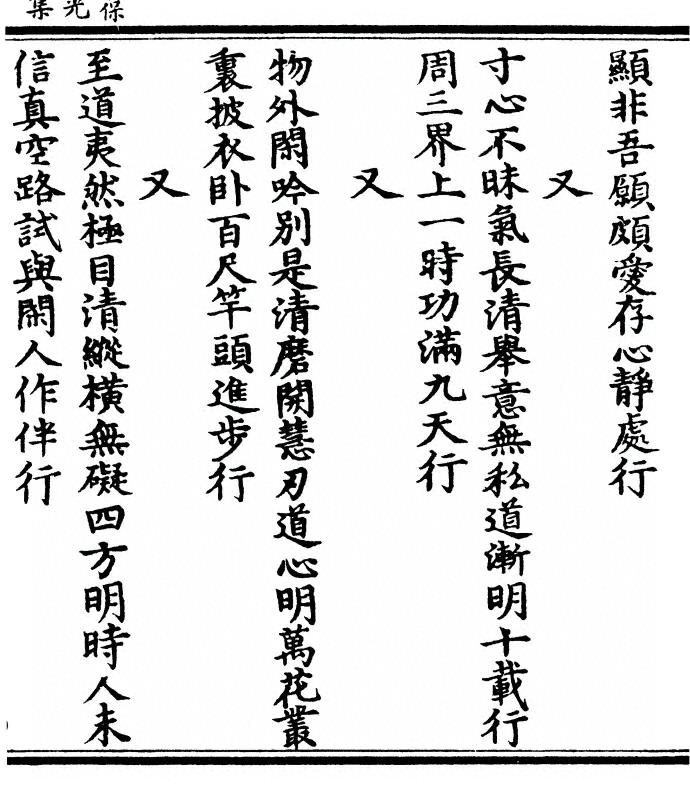 保光集
顯非吾願頗愛存心靜處行
又
寸心不昧氣長清舉意無私道漸明十載行
周三界上一時功滿九天行
又
物外閑吟別是清磨開慧刃道心明萬花叢
裏披衣卧百尺竿頭進步行
又
至道夷然極目清縱橫無礙四方明時人未
信真空路試與閑人作伴行